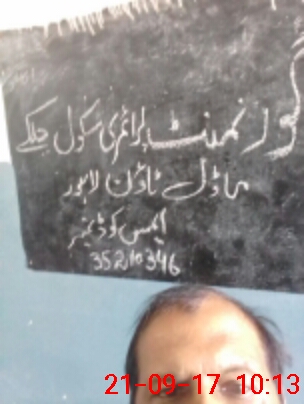 گورنمنٹ پرائمری سکول چلکے
ماڈل ٹاؤن لاہور
ایمس کوڈ نمبر
35210346
21-09-17 10:13